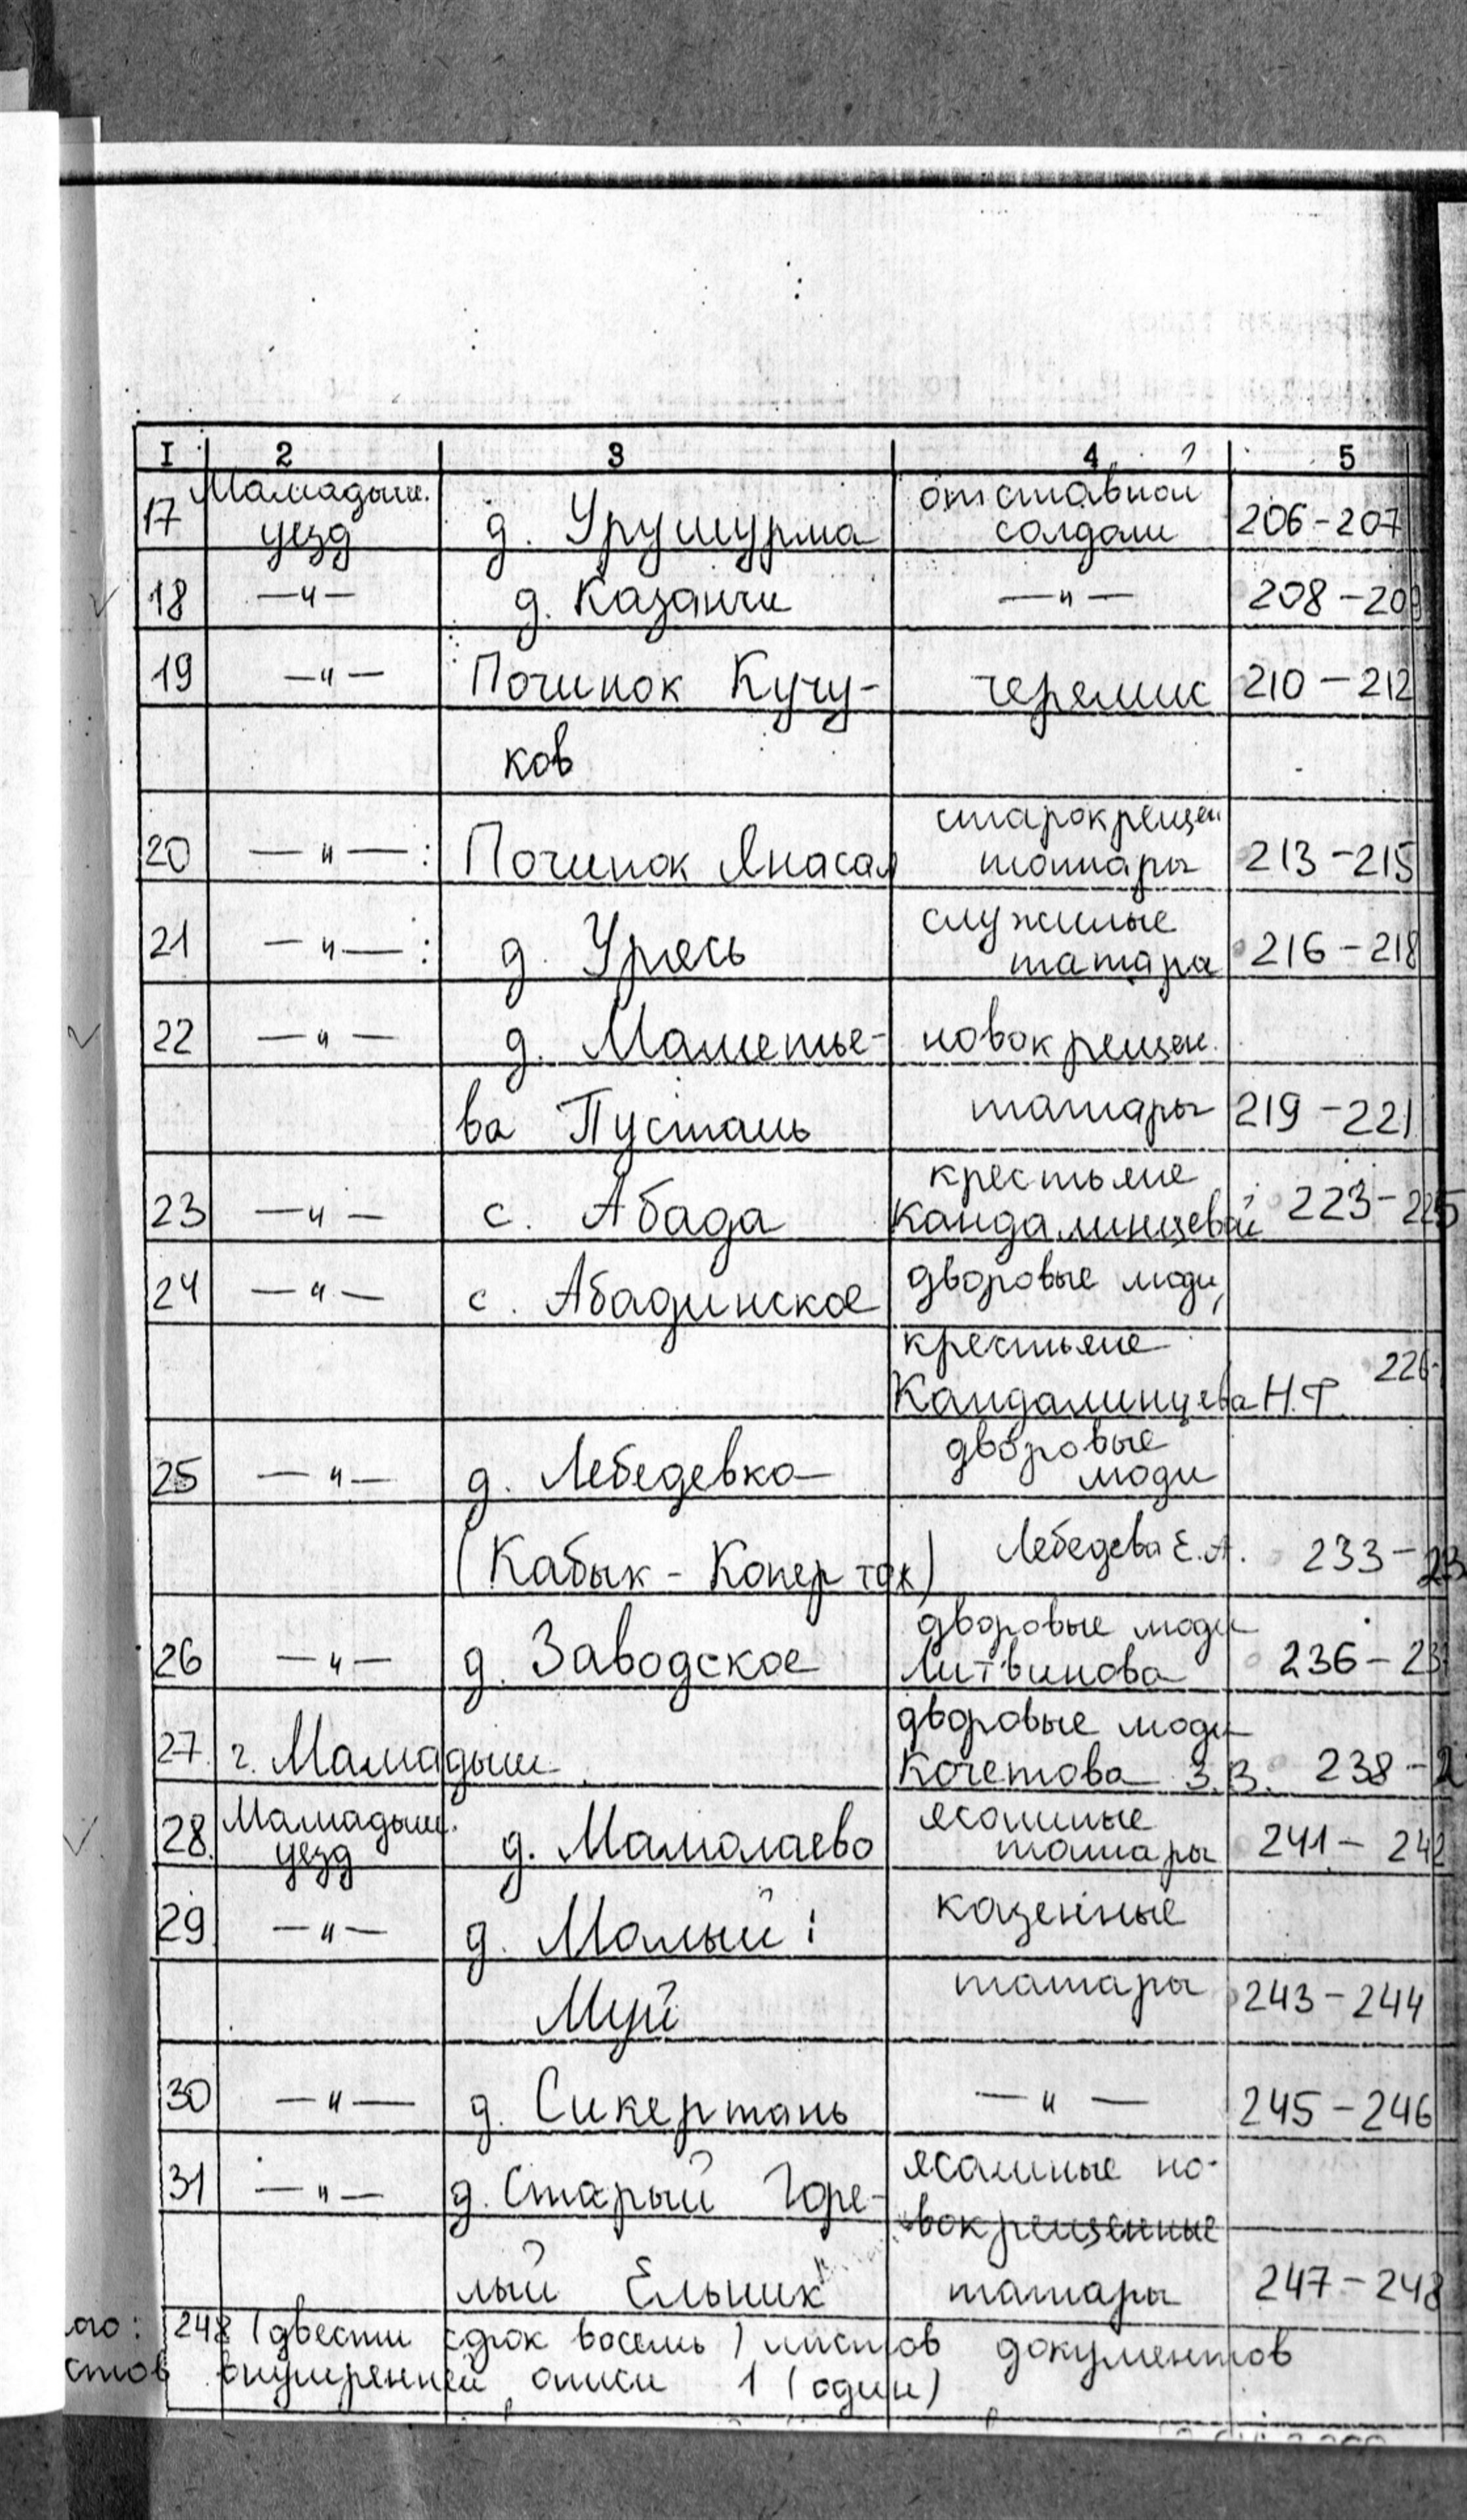 I 2 3 4 5
17 Мамадыш. уезд д. Урушурма отставной солдат 206-207
18 —"— д. Казанчи —"— 208-209
19 —"— Починок Кучу- черемис 210-212
ков
20 —"— Починок Янасал старокрещен татары 213-215
21 —"— д. Урясь служилые татары 216-218
22 —"— д. Маметье- новокрещен.
ва Пустань татары 219-221
23 —"— с. Абада крестьяне Кандалинцевой 223-225
24 —"— с. Абадинское дворовые люди,
крестьяне
Кандалинцева Н.Ф. 226-
25 —"— д. Лебедевка дворовые люди
(Кабык-Копер тож) Лебедева Е.А. 233-
26 —"— д. Заводское дворовые люди Литвинова 236-
27. г. Мамадыш дворовые люди Кочетова З.В. 238-
28. Мамадыш. уезд д. Мамалаево ясашные татары 241-242
29. —"— д. Малый казенные
Муй татары 243-244
30 —"— д. Сикертань —"— 245-246
31 —"— д. Старый Горе- ясашные но-
вокрещенные
лый Ельник татары 247-248
248 (двести сорок восемь) листов документов
внутренней описи 1 (один)